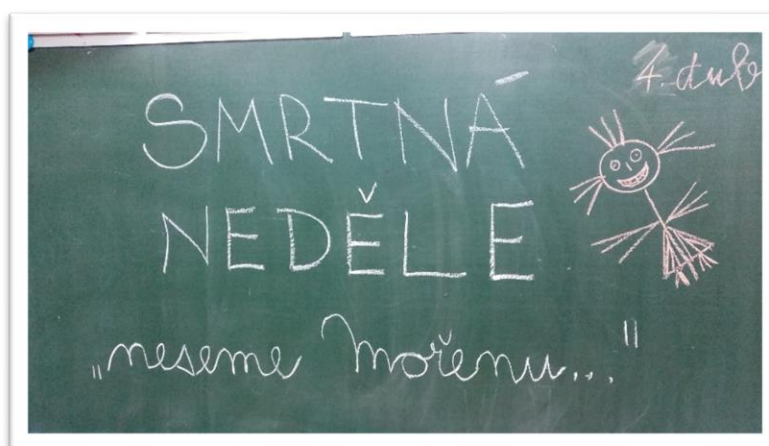 4. dub
SMRTNÁ
NEDĚLE
„neseme Mořenu..."